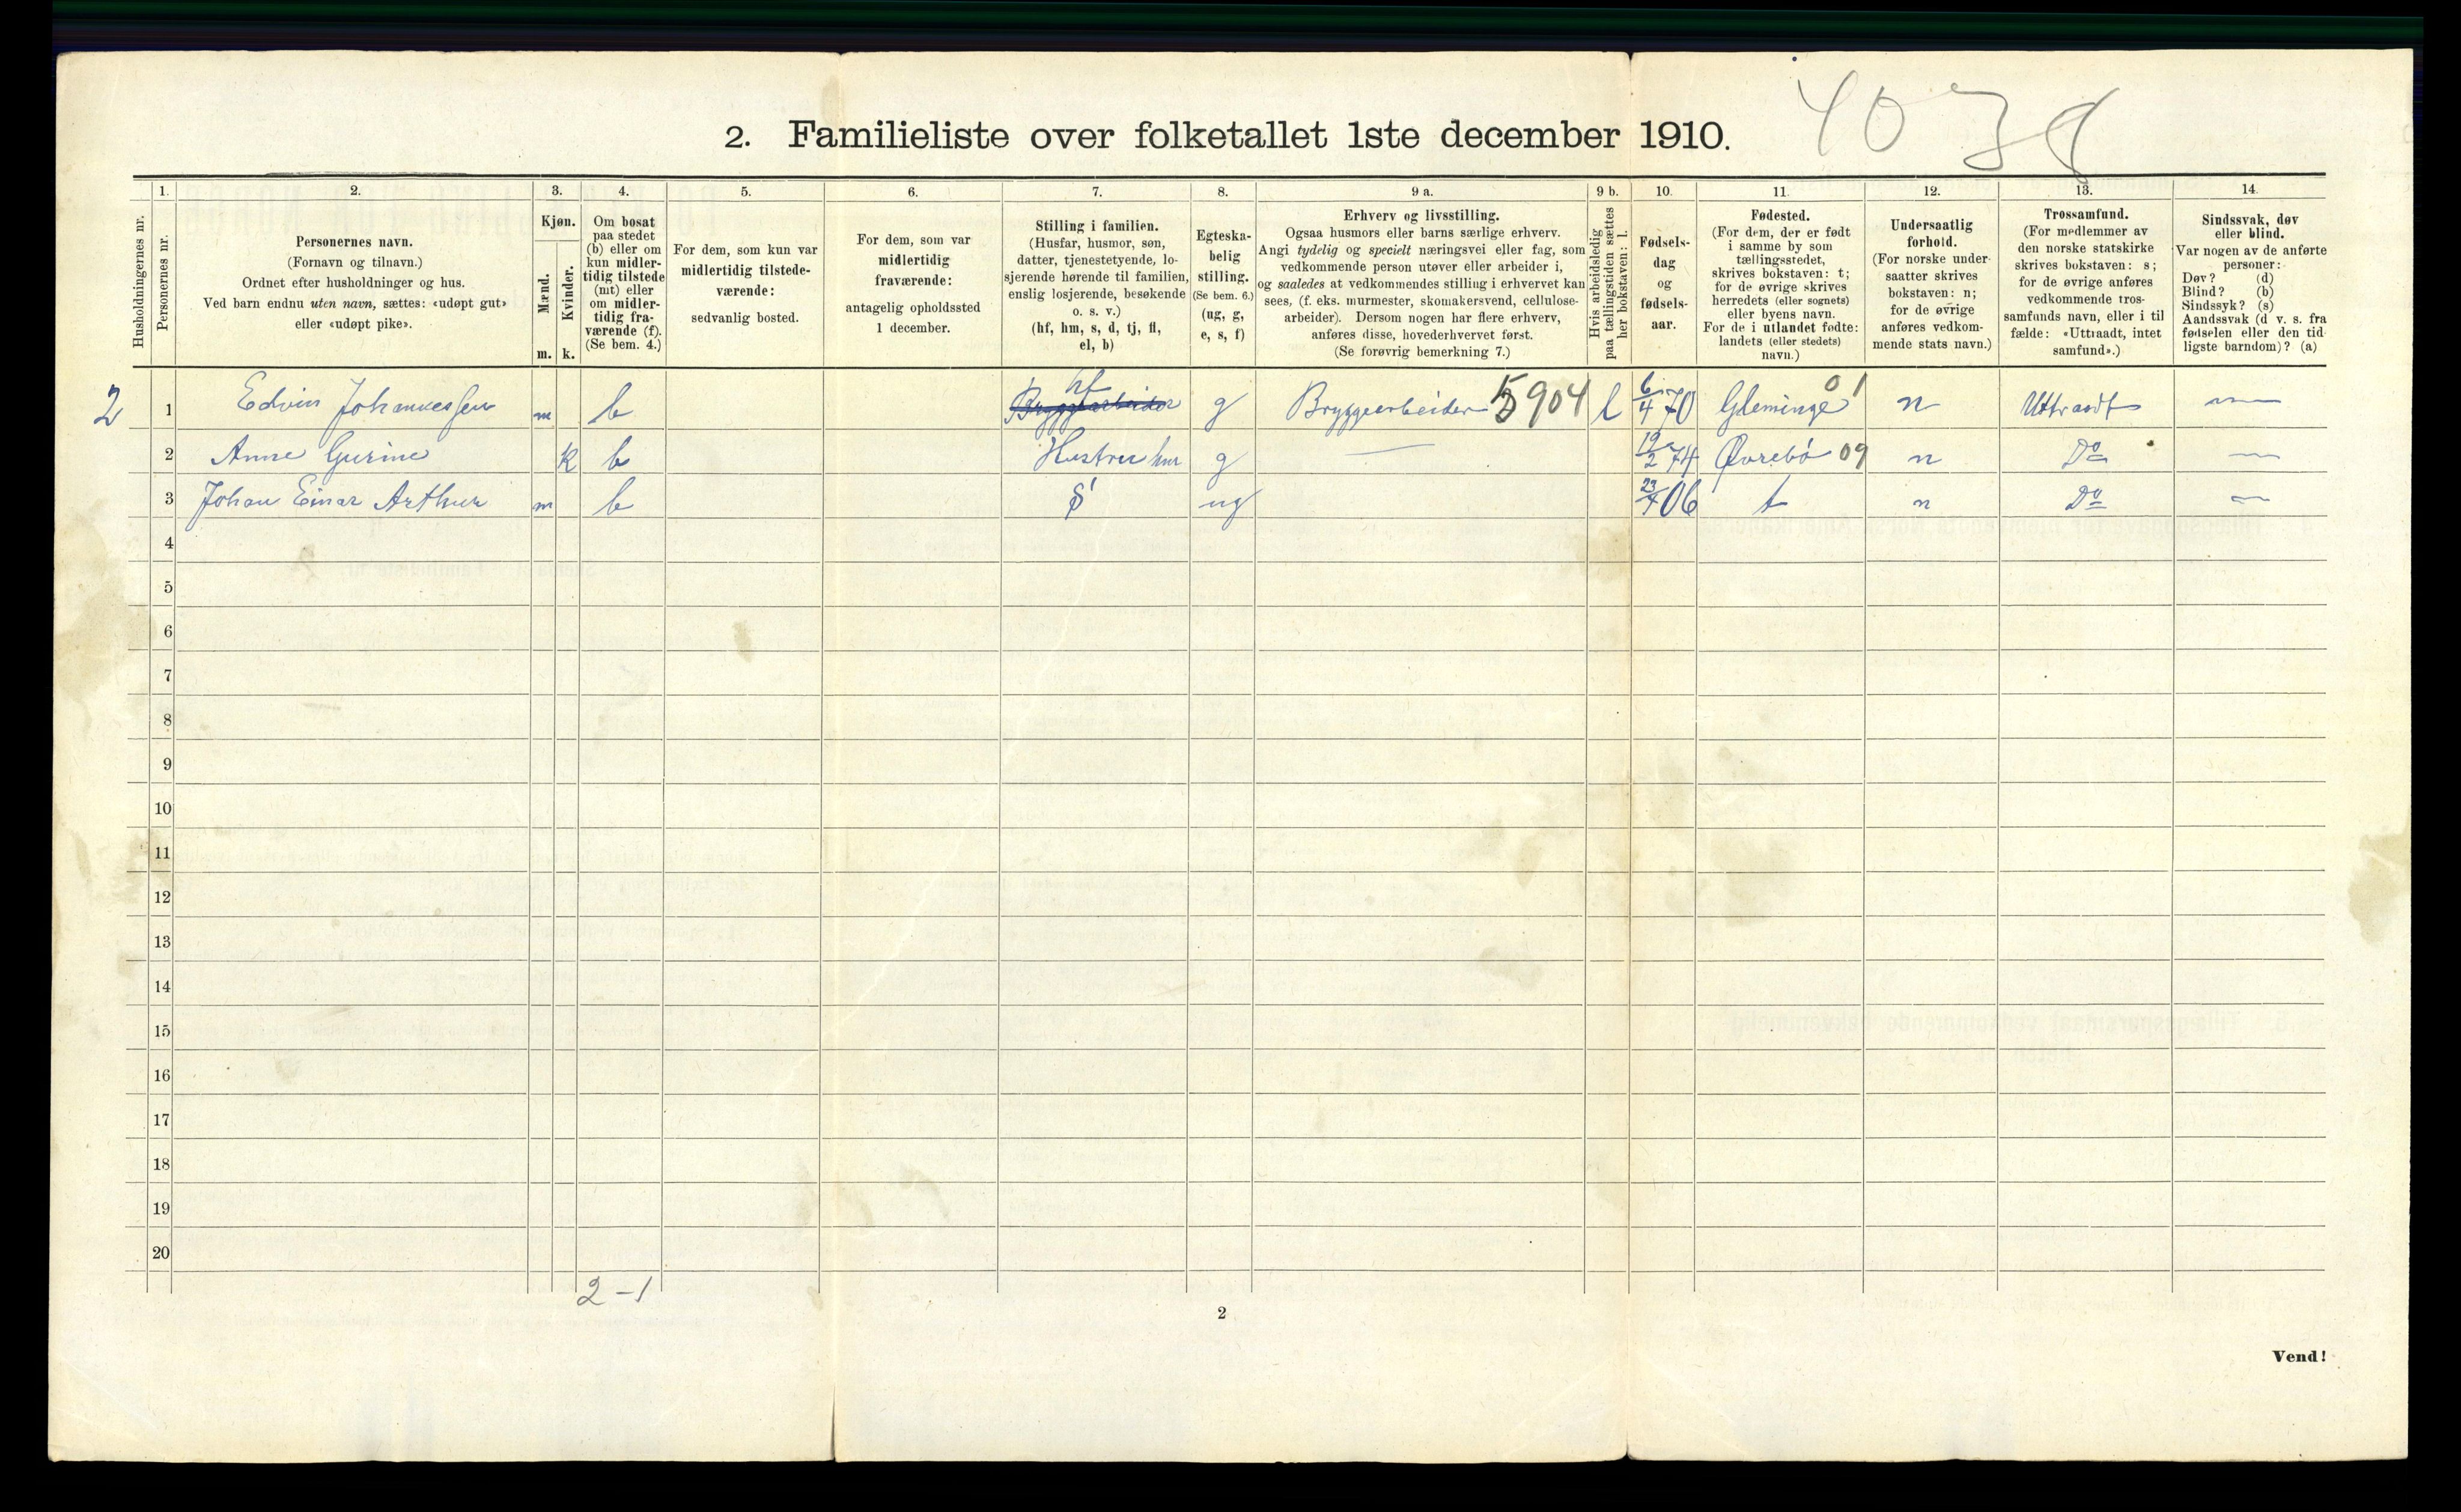 40
2. Familieliste over folketallet 1ste december 1910.
Husholdningernes nr.
1. Personernes nr.
2. Personernes navn.
(Fornavn og tilnavn.)
Ordnet efter husholdninger og hus.
Ved barn endnu uten navn, sættes: «udøpt gut»
eller «udøpt pike».
3. Kjøn.
Mænd. m.
Kvinder. k.
4. Om bosat
paa stedet
(b) eller om
kun midler-
tidig tilstede
(mt) eller
om midler-
tidig fra-
værende (f).
(Se bem. 4.)
5. For dem, som kun var
midlertidig tilstede-
værende:
sedvanlig bosted.
6. For dem, som var
midlertidig
fraværende:
antagelig opholdssted
1 december.
7. Stilling i familien.
(Husfar, husmor, søn,
datter, tjenestetyende, lo-
sjerende hørende til familien,
enslig losjerende, besøkende
o. s. v.)
(hf, hm, s, d, tj, fl,
el, b)
8. Egteska-
belig
stilling.
(Se bem. 6.)
(ug, g,
e, s, f)
9 a. Erhverv og livsstilling.
Ogsaa husmors eller barns særlige erhverv.
Angi tydelig og specielt næringsvei eller fag, som
vedkommende person utøver eller arbeider i,
og saaledes at vedkommendes stilling i erhvervet kan
sees, (f. eks. murmester, skomakersvend, cellulose-
arbeider). Dersom nogen har flere erhverv,
anføres disse, hovederhvervet først.
(Se forøvrig bemerkning 7.)
9 b. Hvis arbeidsledig
paa tællingstiden sættes
her bokstaven: l.
10. Fødsels-
dag
og
fødsels-
aar.
11. Fødested.
(For dem, der er født
i samme by som
tællingsstedet,
skrives bokstaven: t;
for de øvrige skrives
herredets (eller sognets)
eller byens navn.
For de i utlandet fødte:
landets (eller stedets)
navn.)
12. Undersaatlig
forhold.
(For norske under-
saatter skrives
bokstaven: n;
for de øvrige
anføres vedkom-
mende stats navn.)
13. Trossamfund.
(For medlemmer av
den norske statskirke
skrives bokstaven: s;
for de øvrige anføres
vedkommende tros-
samfunds navn, eller i til
fælde: «Uttraadt, intet
samfund».)
14. Sindssvak, døv
eller blind.
Var nogen av de anførte
personer:
Døv? (d)
Blind? (b)
Sindssyk? (s)
Aandssvak (d v. s. fra
fødselen eller den tid-
ligste barndom)? (a)
2 1 Edvin Johannessen m b Bryggearbeider hf g Bryggearbeider 5904 l 6/4 70 Gleminge 01 n Uttraadt —
2 Anne Gurine k b Hustru hm g — 19/2 74 Øvrebö 09 n Do —
3 Johan Einar Arthur m b s ug 23/4 06 t n Do —
4
5
6
7
8
9
10
11
12
13
14
15
16
17
18
19
20
2–1
2
Vend!